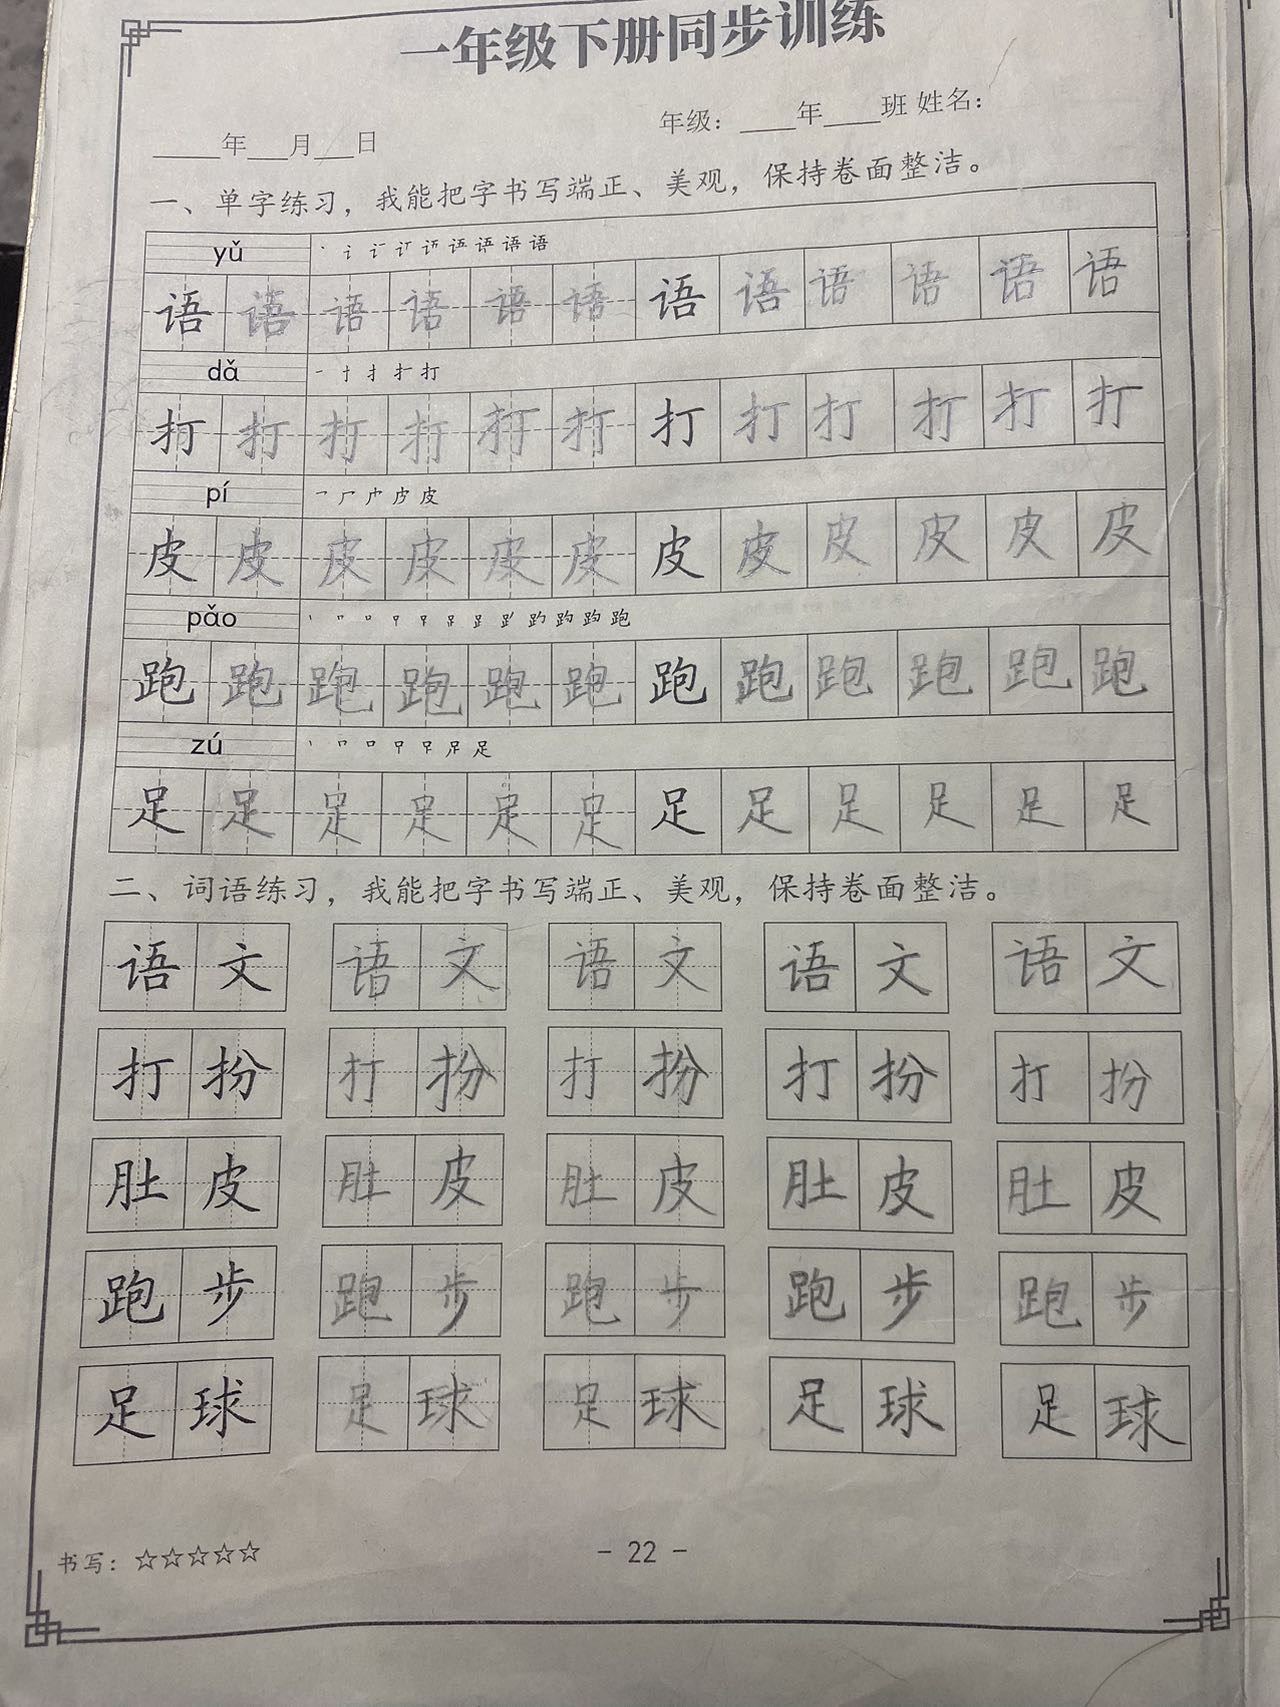 一年级下册同步训练
____年__月__日 年级：____年____班 姓名：
一、单字练习，我能把字书写端正、美观，保持卷面整洁。
yǔ
语 语 语 语 语 语 语 语 语 语 语 语
dǎ 一 十 扌 扩 打
打 打 打 打 打 打 打 打 打 打 打 打
pí
皮 皮 皮 皮 皮 皮 皮 皮 皮 皮 皮 皮
pǎo
跑 跑 跑 跑 跑 跑 跑 跑 跑 跑 跑 跑
zú
足 足 足 足 足 足 足 足 足 足 足 足
二、词语练习，我能把字书写端正、美观，保持卷面整洁。
语文 语文 语文 语文 语文
打扮 打扮 打扮 打扮 打扮
肚皮 肚皮 肚皮 肚皮 肚皮
跑步 跑步 跑步 跑步 跑步
足球 足球 足球 足球 足球
书写：☆☆☆☆☆ - 22 -